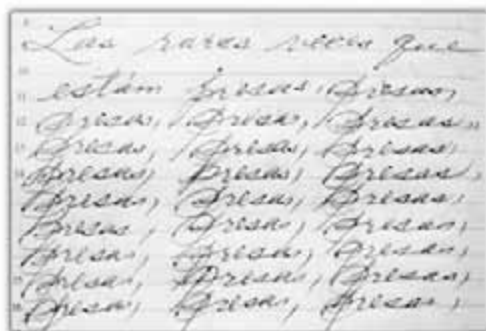 Las raras veces que
están presas, presas,
presas, presas, presas,
presas, presas, presas,
presas, presas, presas,
presas, presas, presas,
presas, presas, presas,
presas, presas, presas,
presas, presas, presas,
presas, presas, presas,